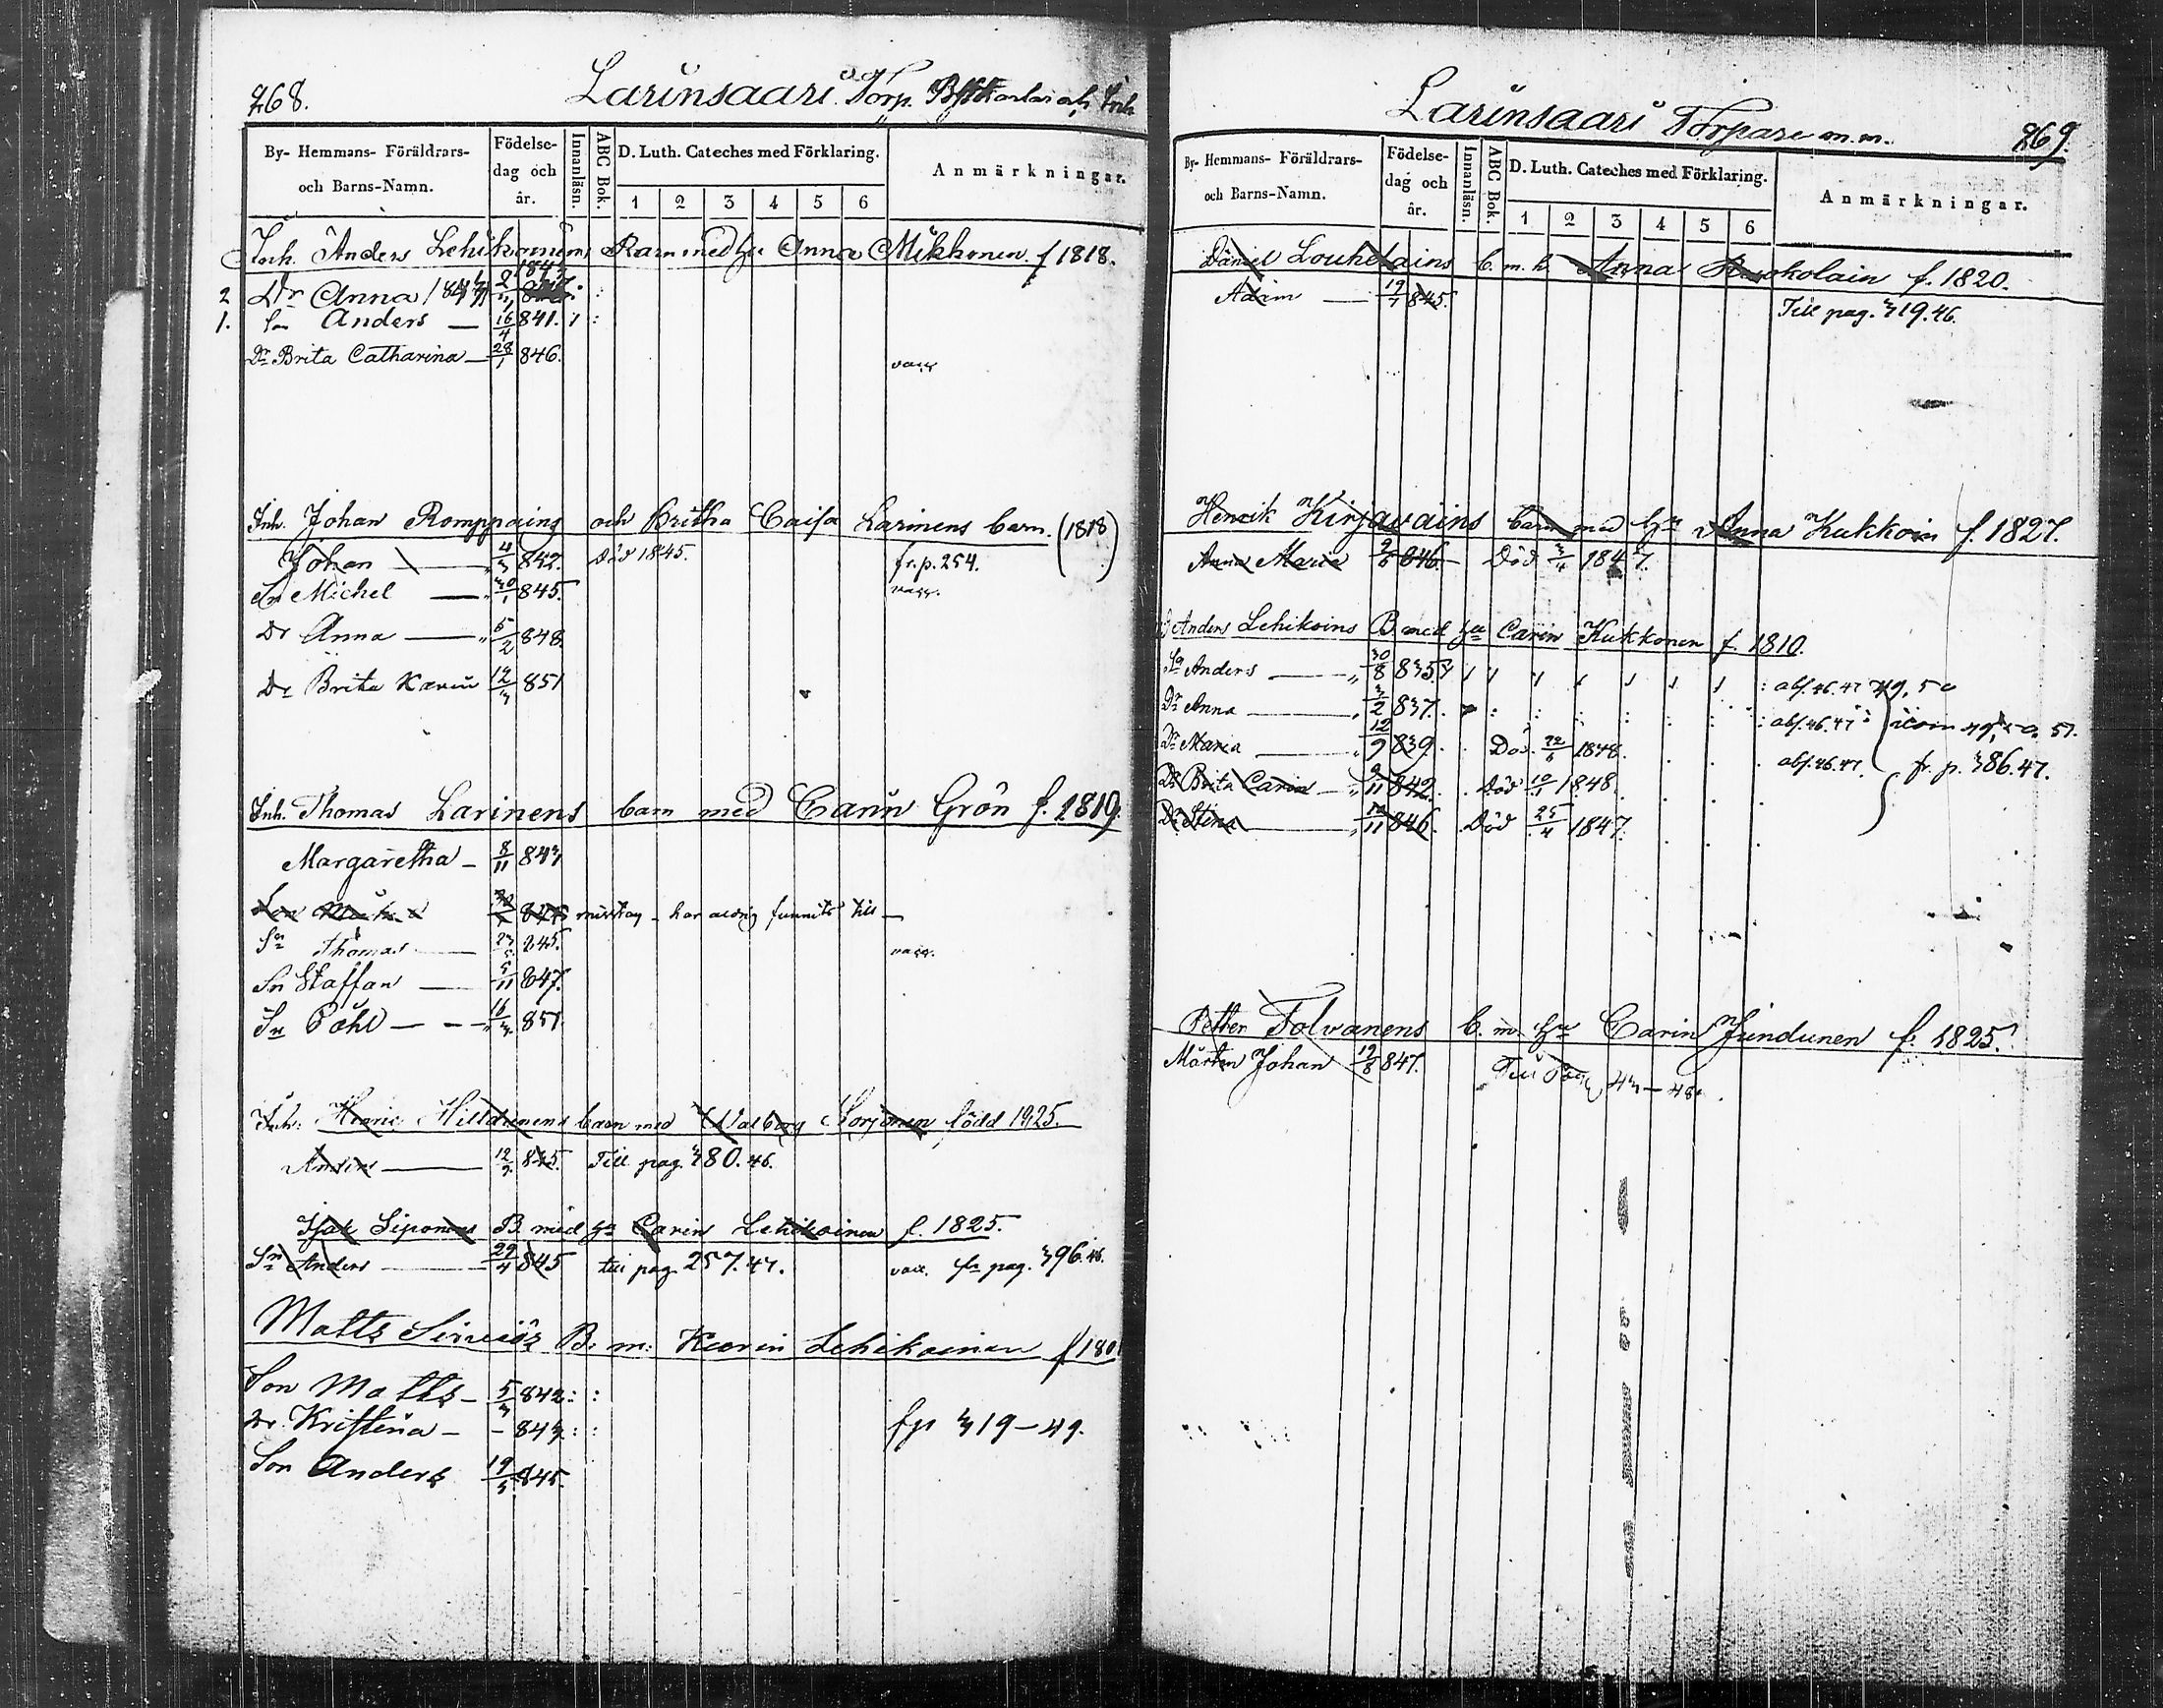 268.
Larinsaari Torp.
By- Hemmans- Föräldrars- och Barns-Namn.
Födelse- dag och år.
Innanläsn.
ABC Bok.
D. Luth. Cateches med Förklaring.
1 2 3 4 5 6
Anmärkningar.
Inh. Anders Lehikoinens Barn med hu Anna Mikkonen. f 1818.
2 Dr Anna
1. Sn Anders — 16/4 841.
Dr Brita Catharina — 28/1 846. vacc
Inh. Johan Romppains och Britha Caisa Larinens barn. (1818)
Johan — 4/3 842. Död 1845. fr. p. 254.
Sn Michel — 30/1 845. vacc.
Dr Anna — 5/2 848.
Dr Brita Karin 12/3 851
Inh. Thomas Larinens barn med Carin Grön f. 1819.
Margaretha — 8/11 843
misstag - har aldrig funnits till —
Sn Thomas — 845. vacc.
Sn Staffan — 5/11 847.
Sn Påhl — 851.
Inh. Henric Hilldunens barn med Walborg Sorjonen född 1825.
Anders — 845. Till pag. 380. 46.
Isak Siponens B. med hu Carin Lehikoinen f. 1825.
Sn Anders — 29/4 845 till pag 257. 47. vacc. fr pag. 396. 46.
Matts Sirviös B. m: Karin Lehikoinen f 180
Son Matts — 5/3 842 : :
Dr. Kristina — - 843 : : 319 — 49.
Son Anders 19/5 845.
Larinsaari Torpare m.m. 269.
By- Hemmans- Föräldrars- och Barns-Namn.
Födelse- dag och år.
Innanläsn.
ABC Bok.
D. Luth. Cateches med Förklaring.
1 2 3 4 5 6
Anmärkningar.
Daniel Louhelains b. m. h. Anna f. 1820.
Adam — 845. Till pag. 319. 46.
Henrik Kirjavains barn med hu Anna Kukkoin f. 1827.
Anna Maria 846. — Död 3/4 1847.
Anders Lehikoins B med hu Carin Kukkonen f. 1810.
Sn Anders — 30/8 835. abs. 46. 47 49, 50
Dr Anna — 3/2 837. abs. 46. 47 49, 50. 51.
Dr Maria — 12/9 839. Död 1848. abs. 46. 47. fr. p. 386. 47.
Dr Brita Carin — 842. Död 1848.
Dr Stina — 846. Död 25/4 1847.
Petter Tolvanens b. m. hu Carin Jundunen f. 1825.
Mårten Johan 19/8 847. Till 43 — 48.